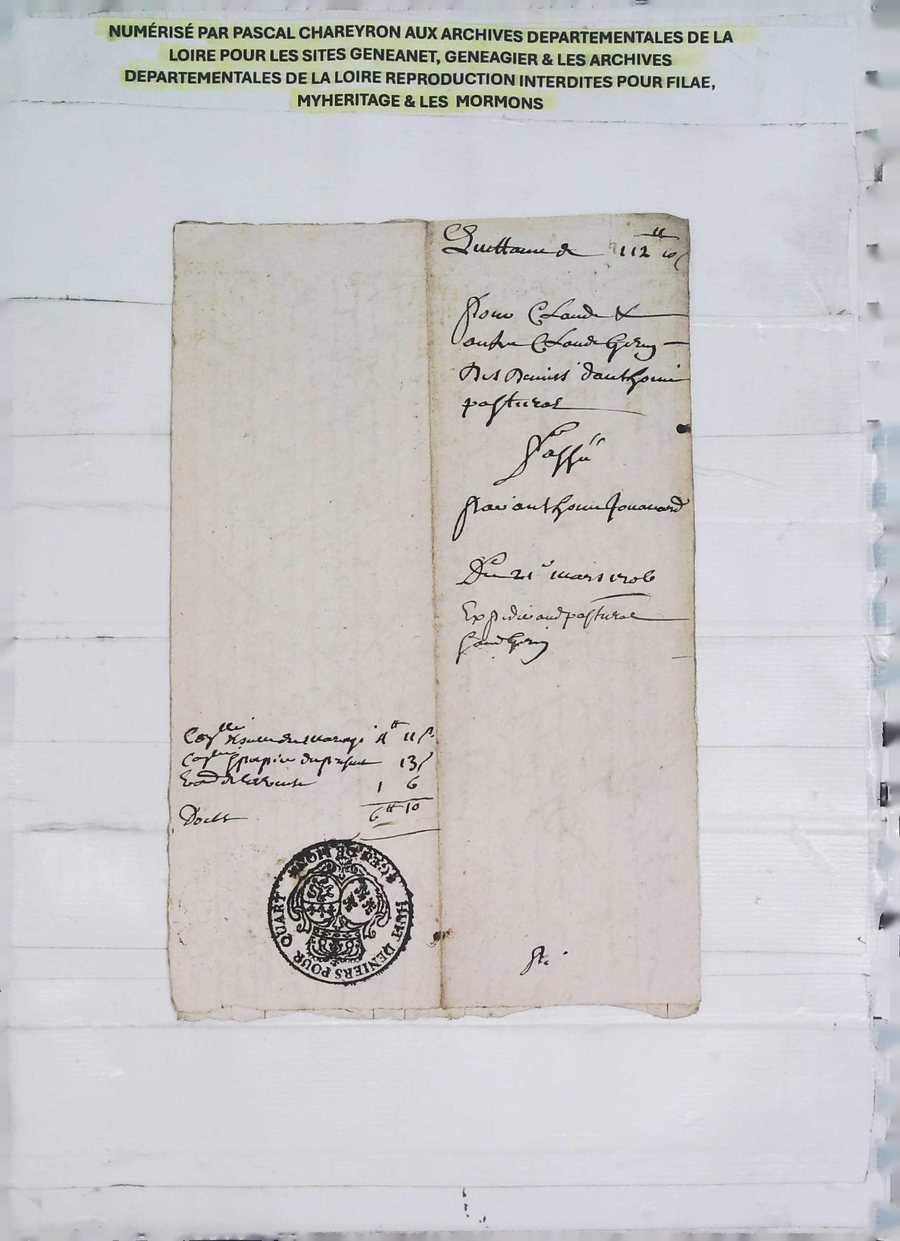 NUMÉRISÉ PAR PASCAL CHAREYRON AUX ARCHIVES DEPARTEMENTALES DE LA
LOIRE POUR LES SITES GENEANET, GENEAGIER & LES ARCHIVES
DEPARTEMENTALES DE LA LOIRE REPRODUCTION INTERDITES POUR FILAE,
MYHERITAGE & LES MORMONS
Quittance de 112 tt 10 s
pour Claude &
autre Claude Gery
des deniers d'anthoine
pasturas
passé
par anthoine Jouanard
Du 21e mars 1706
Expedié aud pasturas
4 tt 11 s
papier 13 s
1 6
6 tt 10
HUIT DENIERS POUR QUART